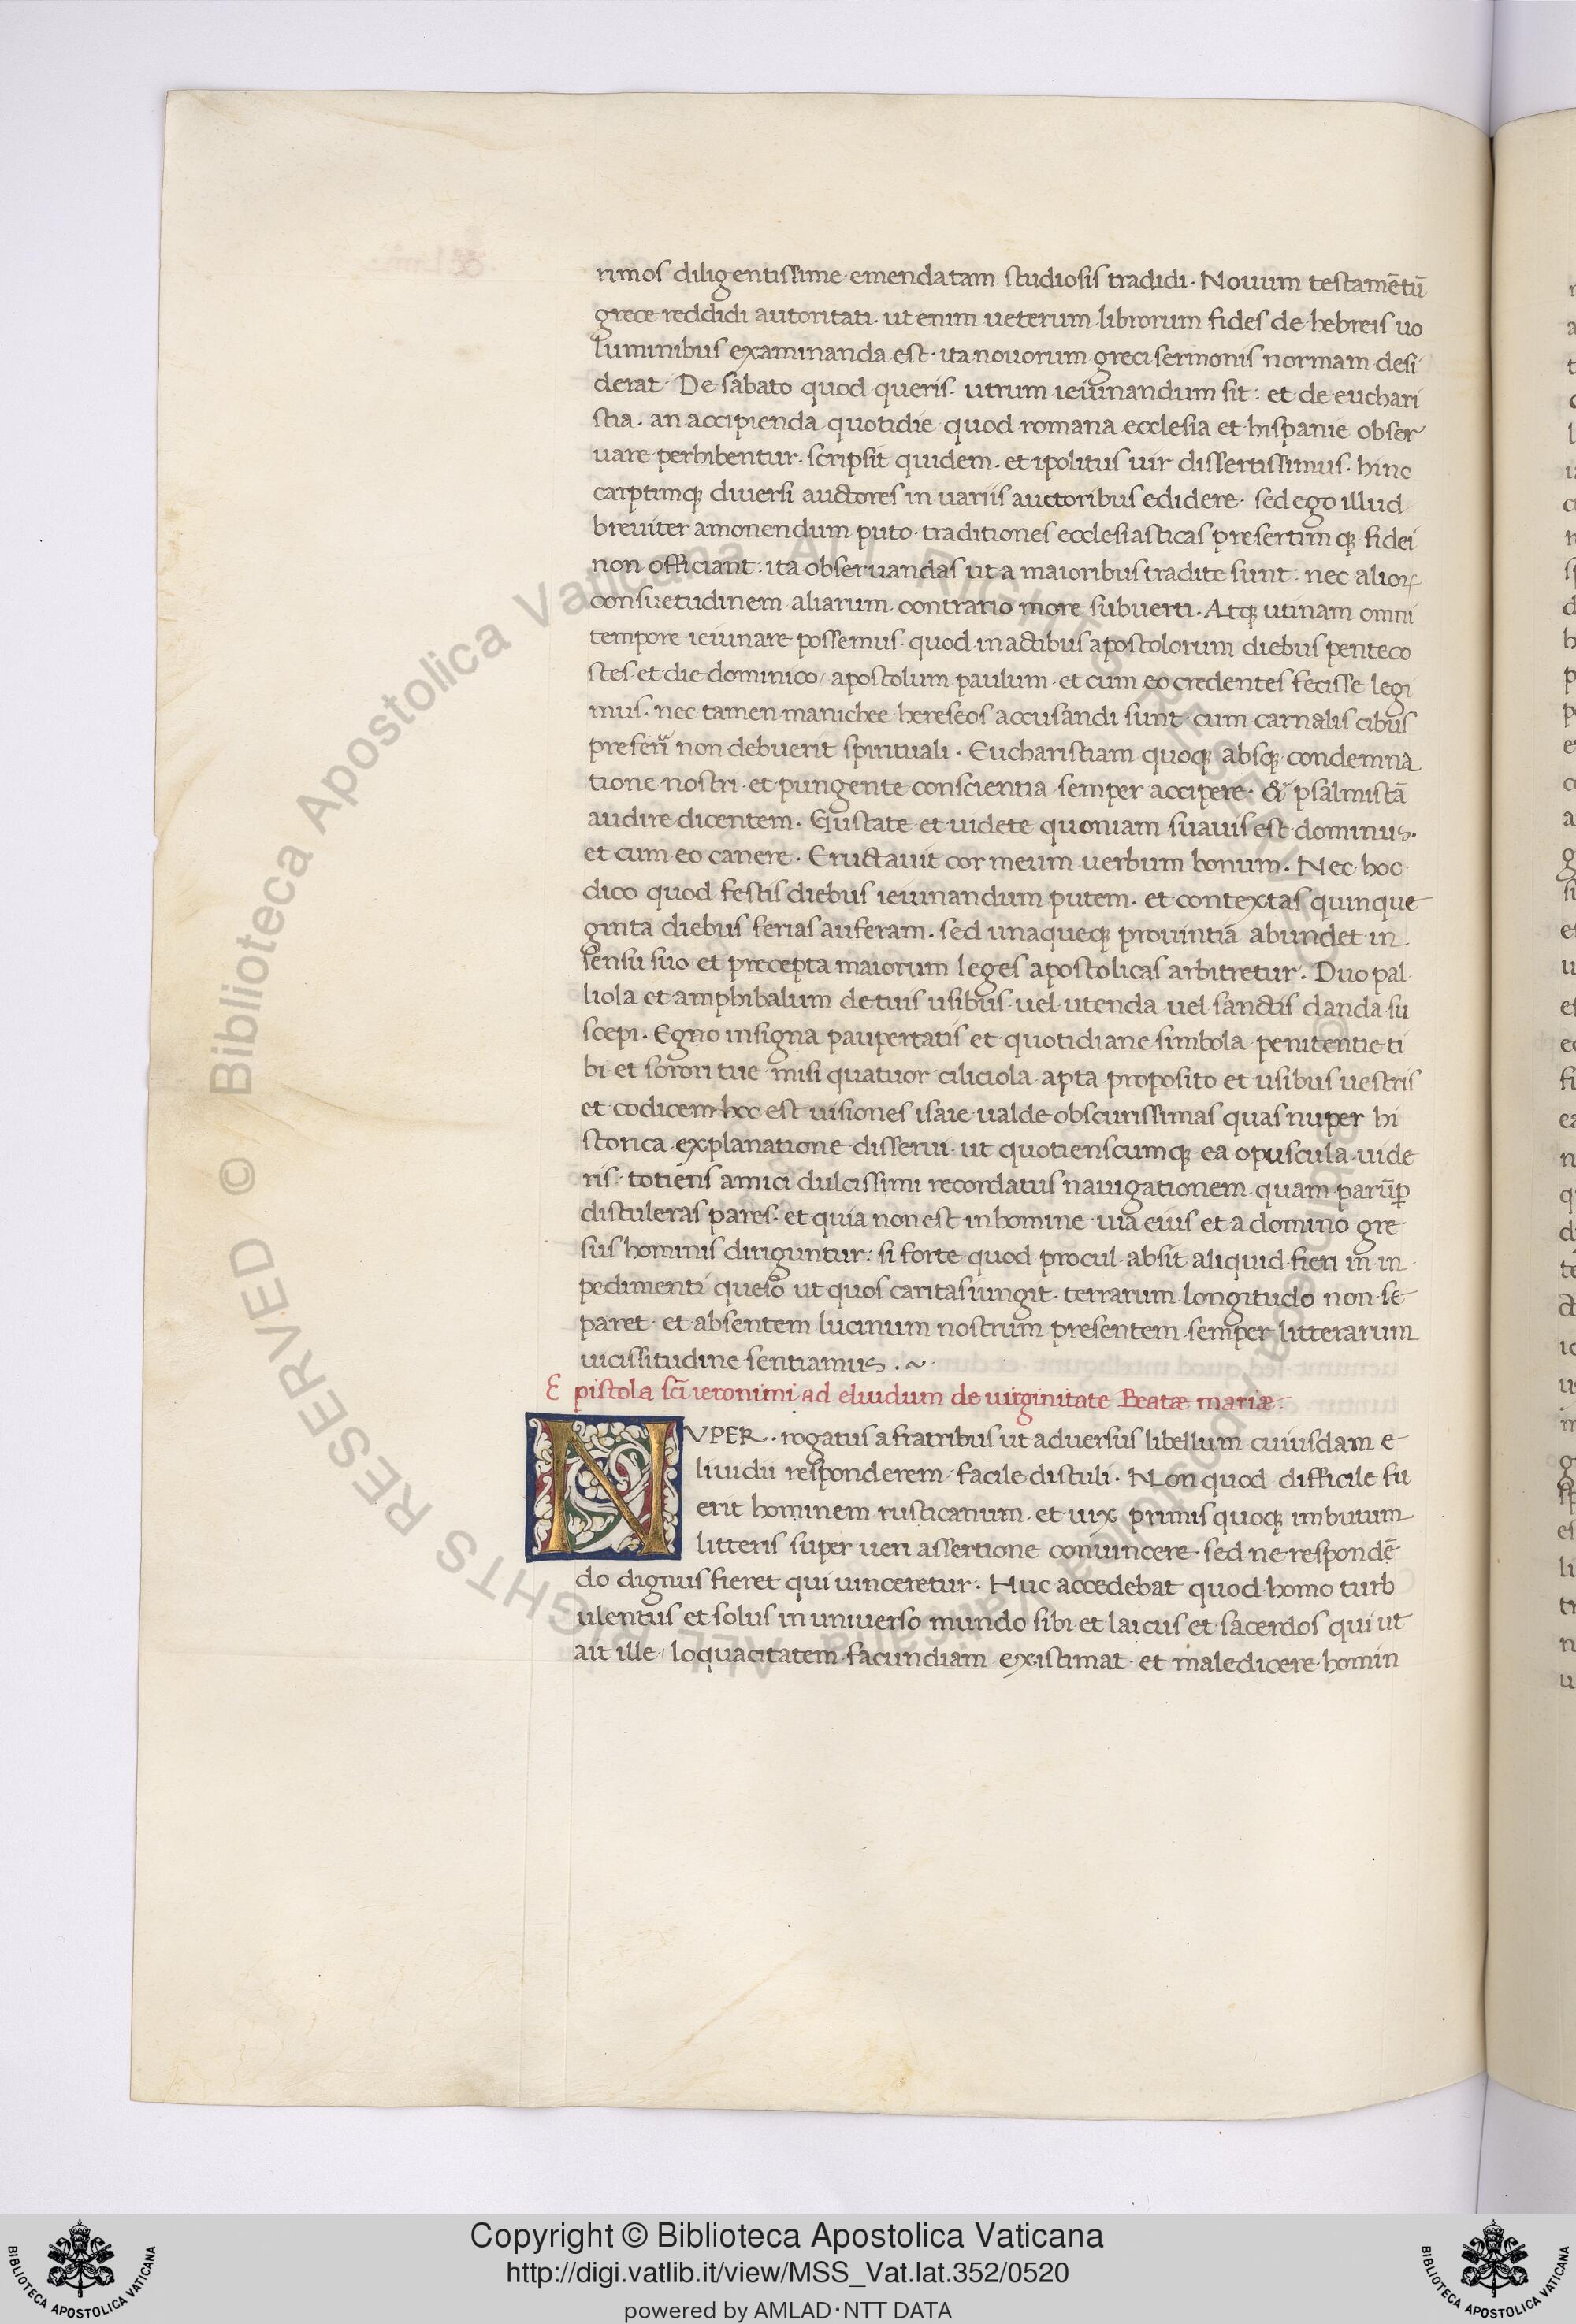 rimos diligentissime emendatam studiosis tradidi. Nouum testamētū
grece reddidi autoritati. ut enim ueterum librorum fides de hebreis uo
luminibus examinanda est. ita nouorum greci sermonis normam desi
derat. De sabato quod queris. utrum ieiunandum sit: et de euchari
stia. an accipienda quotidie quod romana ecclesia et hispanie obser
uare perhibentur. scripsit quidem. et ipolitus uir dissertissimus. hinc
carptimqꝫ diuersi auctores in uariis auctoribus edidere. sed ego illud
breuiter amonendum puto. traditiones ecclesiasticas presertim qꝫ fidei
non officiant: ita obseruandas ut a maioribus tradite sunt: nec alioꝝ
consuetudinem aliarum contrario more subuerti. Atqꝫ utinam omni
tempore ieiunare possemus. quod in actibus apostolorum diebus penteco
stes et die dominico/ apostolum paulum et cum eo credentes fecisse legi
mus. nec tamen manichee hereseos accusandi sunt. cum carnalis cibus
preferri non debuerit spirituali. Eucharistiam quoqꝫ absqꝫ condemna
tione nostri. et pungente conscientia semper accipere. & psalmistā
audire dicentem. Gustate et uidete quoniam suauis est dominus.
et cum eo canere. Eructauit cor meum uerbum bonum. Nec hoc
dico quod festis diebus ieiunandum putem. et contextas quinque
ginta diebus ferias auferam. sed unaqueqꝫ prouintia abundet in
sensu suo et precepta maiorum leges apostolicas arbitretur. Duo pal
liola et amphibalum de tuis usibus uel utenda uel sanctis danda su
scepi. Egno insigna paupertatis et quotidiane simbola penitentie ti
bi et sorori tue misi quatuor ciliciola apta proposito et usibus uestris
et codicem hoc est uisiones isaie ualde obscurissimas quas nuper hi
storica explanatione disserui. ut quotienscumqꝫ ea opuscula uide
ris. totiens amici dulcissimi recordatus nauigationem quam parūꝑ
distuleras pares. et quia non est in homine uia eius et a domino gre
sus hominis diriguntur: si forte quod procul absit aliquid fieri in in
pedimenti queso ut quos caritas iungit. terrarum longitudo non se
paret. et absentem lucinum nostrum presentem semper litterarum
uicissitudine sentiamus. ~
Epistola sc̄i ieronimi ad eliudum de uirginitate Beatæ mariæ.
NVPER. rogatus a fratribus ut aduersus libellum cuiusdam e
liuidii responderem facile distuli. Non quod difficile fu
erit hominem rusticanum et uix primis quoqꝫ imbutum
litteris super ueri assertione conuincere. sed ne respondē
do dignus fieret qui uinceretur. Huc accedebat quod homo turb
ulentus et solus in uniuerso mundo sibi et laicus et sacerdos qui ut
ait ille/ loquacitatem facundiam existimat. et maledicere homin
© Biblioteca Apostolica Vaticana ALL RIGHTS RESERVED
© Biblioteca Apostolica Vaticana ALL RIGHTS RESERVED
BIBLIOTECA APOSTOLICA VATICANA
Copyright © Biblioteca Apostolica Vaticana
http://digi.vatlib.it/view/MSS_Vat.lat.352/0520
powered by AMLAD·NTT DATA
BIBLIOTECA APOSTOLICA VATICANA